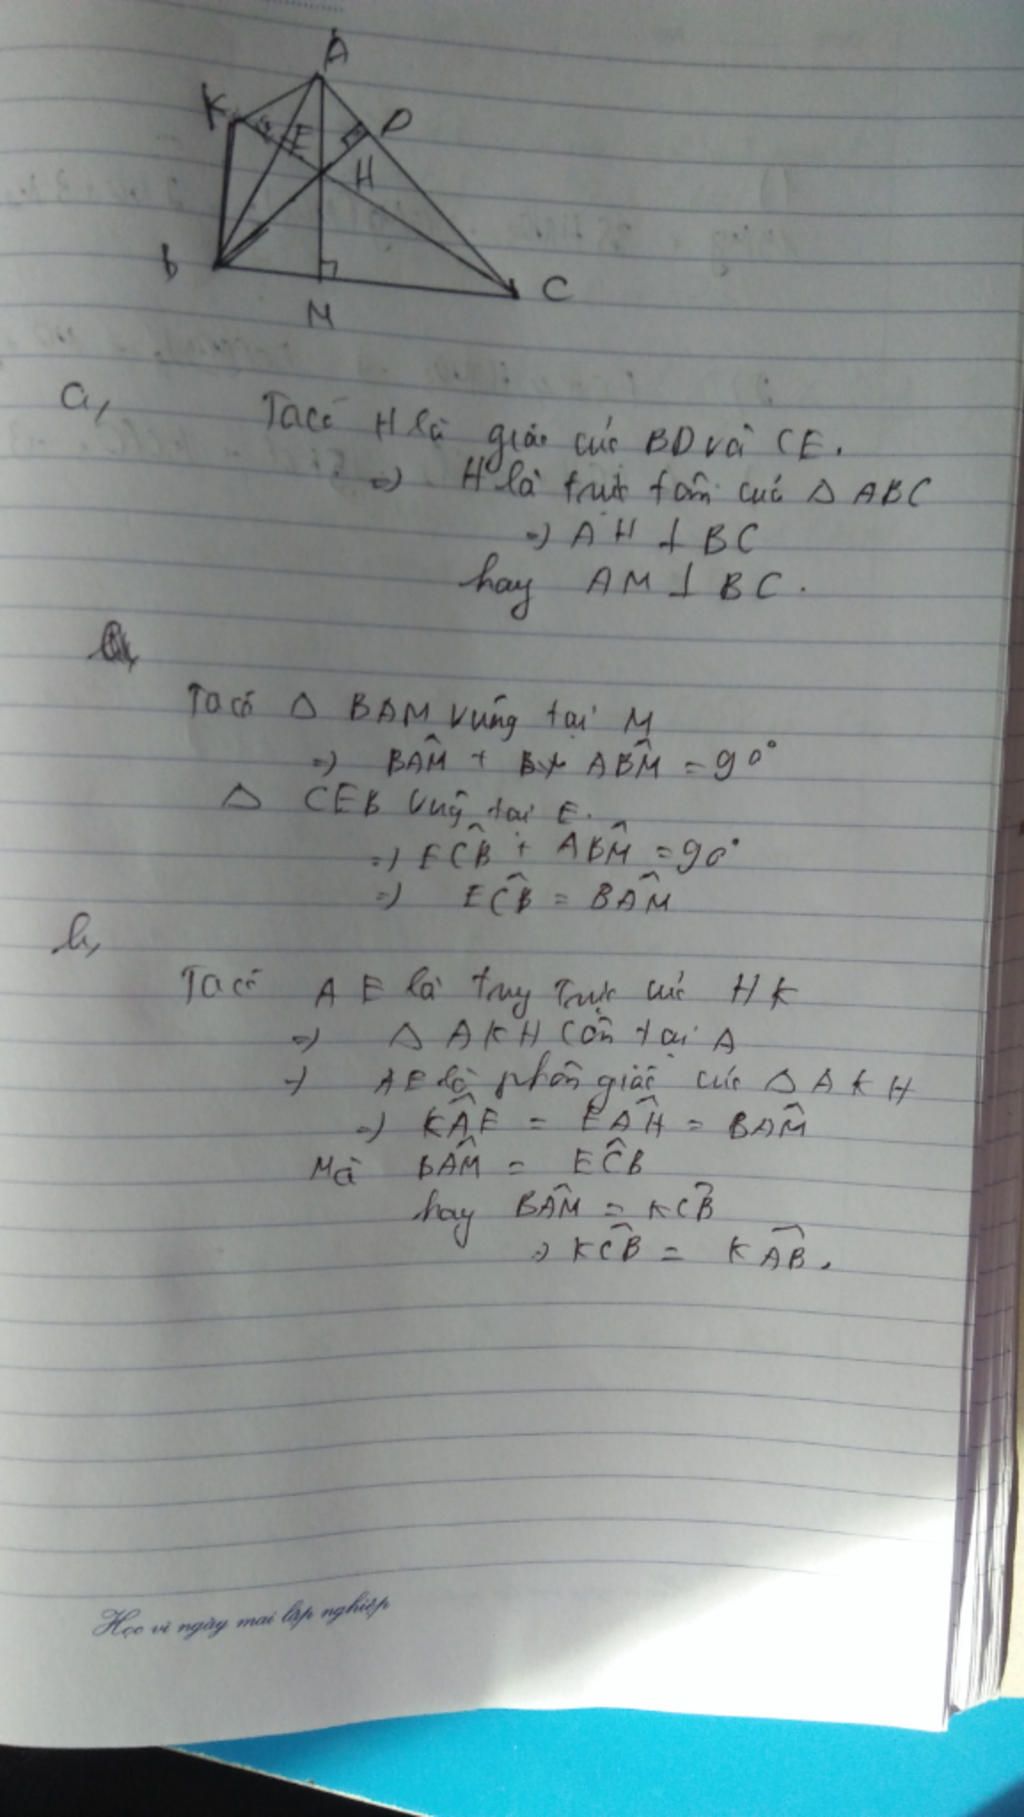 A
K
E
D
H
b
M
C
a,
Ta có H là giao của BD và CE.
=> H là trực tâm của Δ ABC
=> AH ⊥ BC
hay AM ⊥ BC.
Ta có Δ BAM vuông tại M
=> BAM̂ + ABM̂ = 90°
Δ CEB vuông tại E.
=> ECB̂ + ABM̂ = 90°
=> ECB̂ = BAM̂
b,
Ta có AE là trung trực của HK
=> Δ AKH cân tại A
=> AE là phân giác của Δ AKH
=> KAÊ = EAĤ = BAM̂
Mà BAM̂ = ECB̂
hay BAM̂ = KCB̂
=> KCB̂ = KAB̂.
Học vì ngày mai lập nghiệp